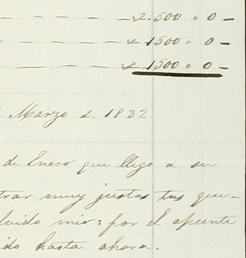 2.500 " 0 —
1500 " 0 —
1500 " 0 —
Marzo d. 1832
de Enero que llego a su
trar muy justas tus que-
luido mio: por el apunte
ido hasta ahora.